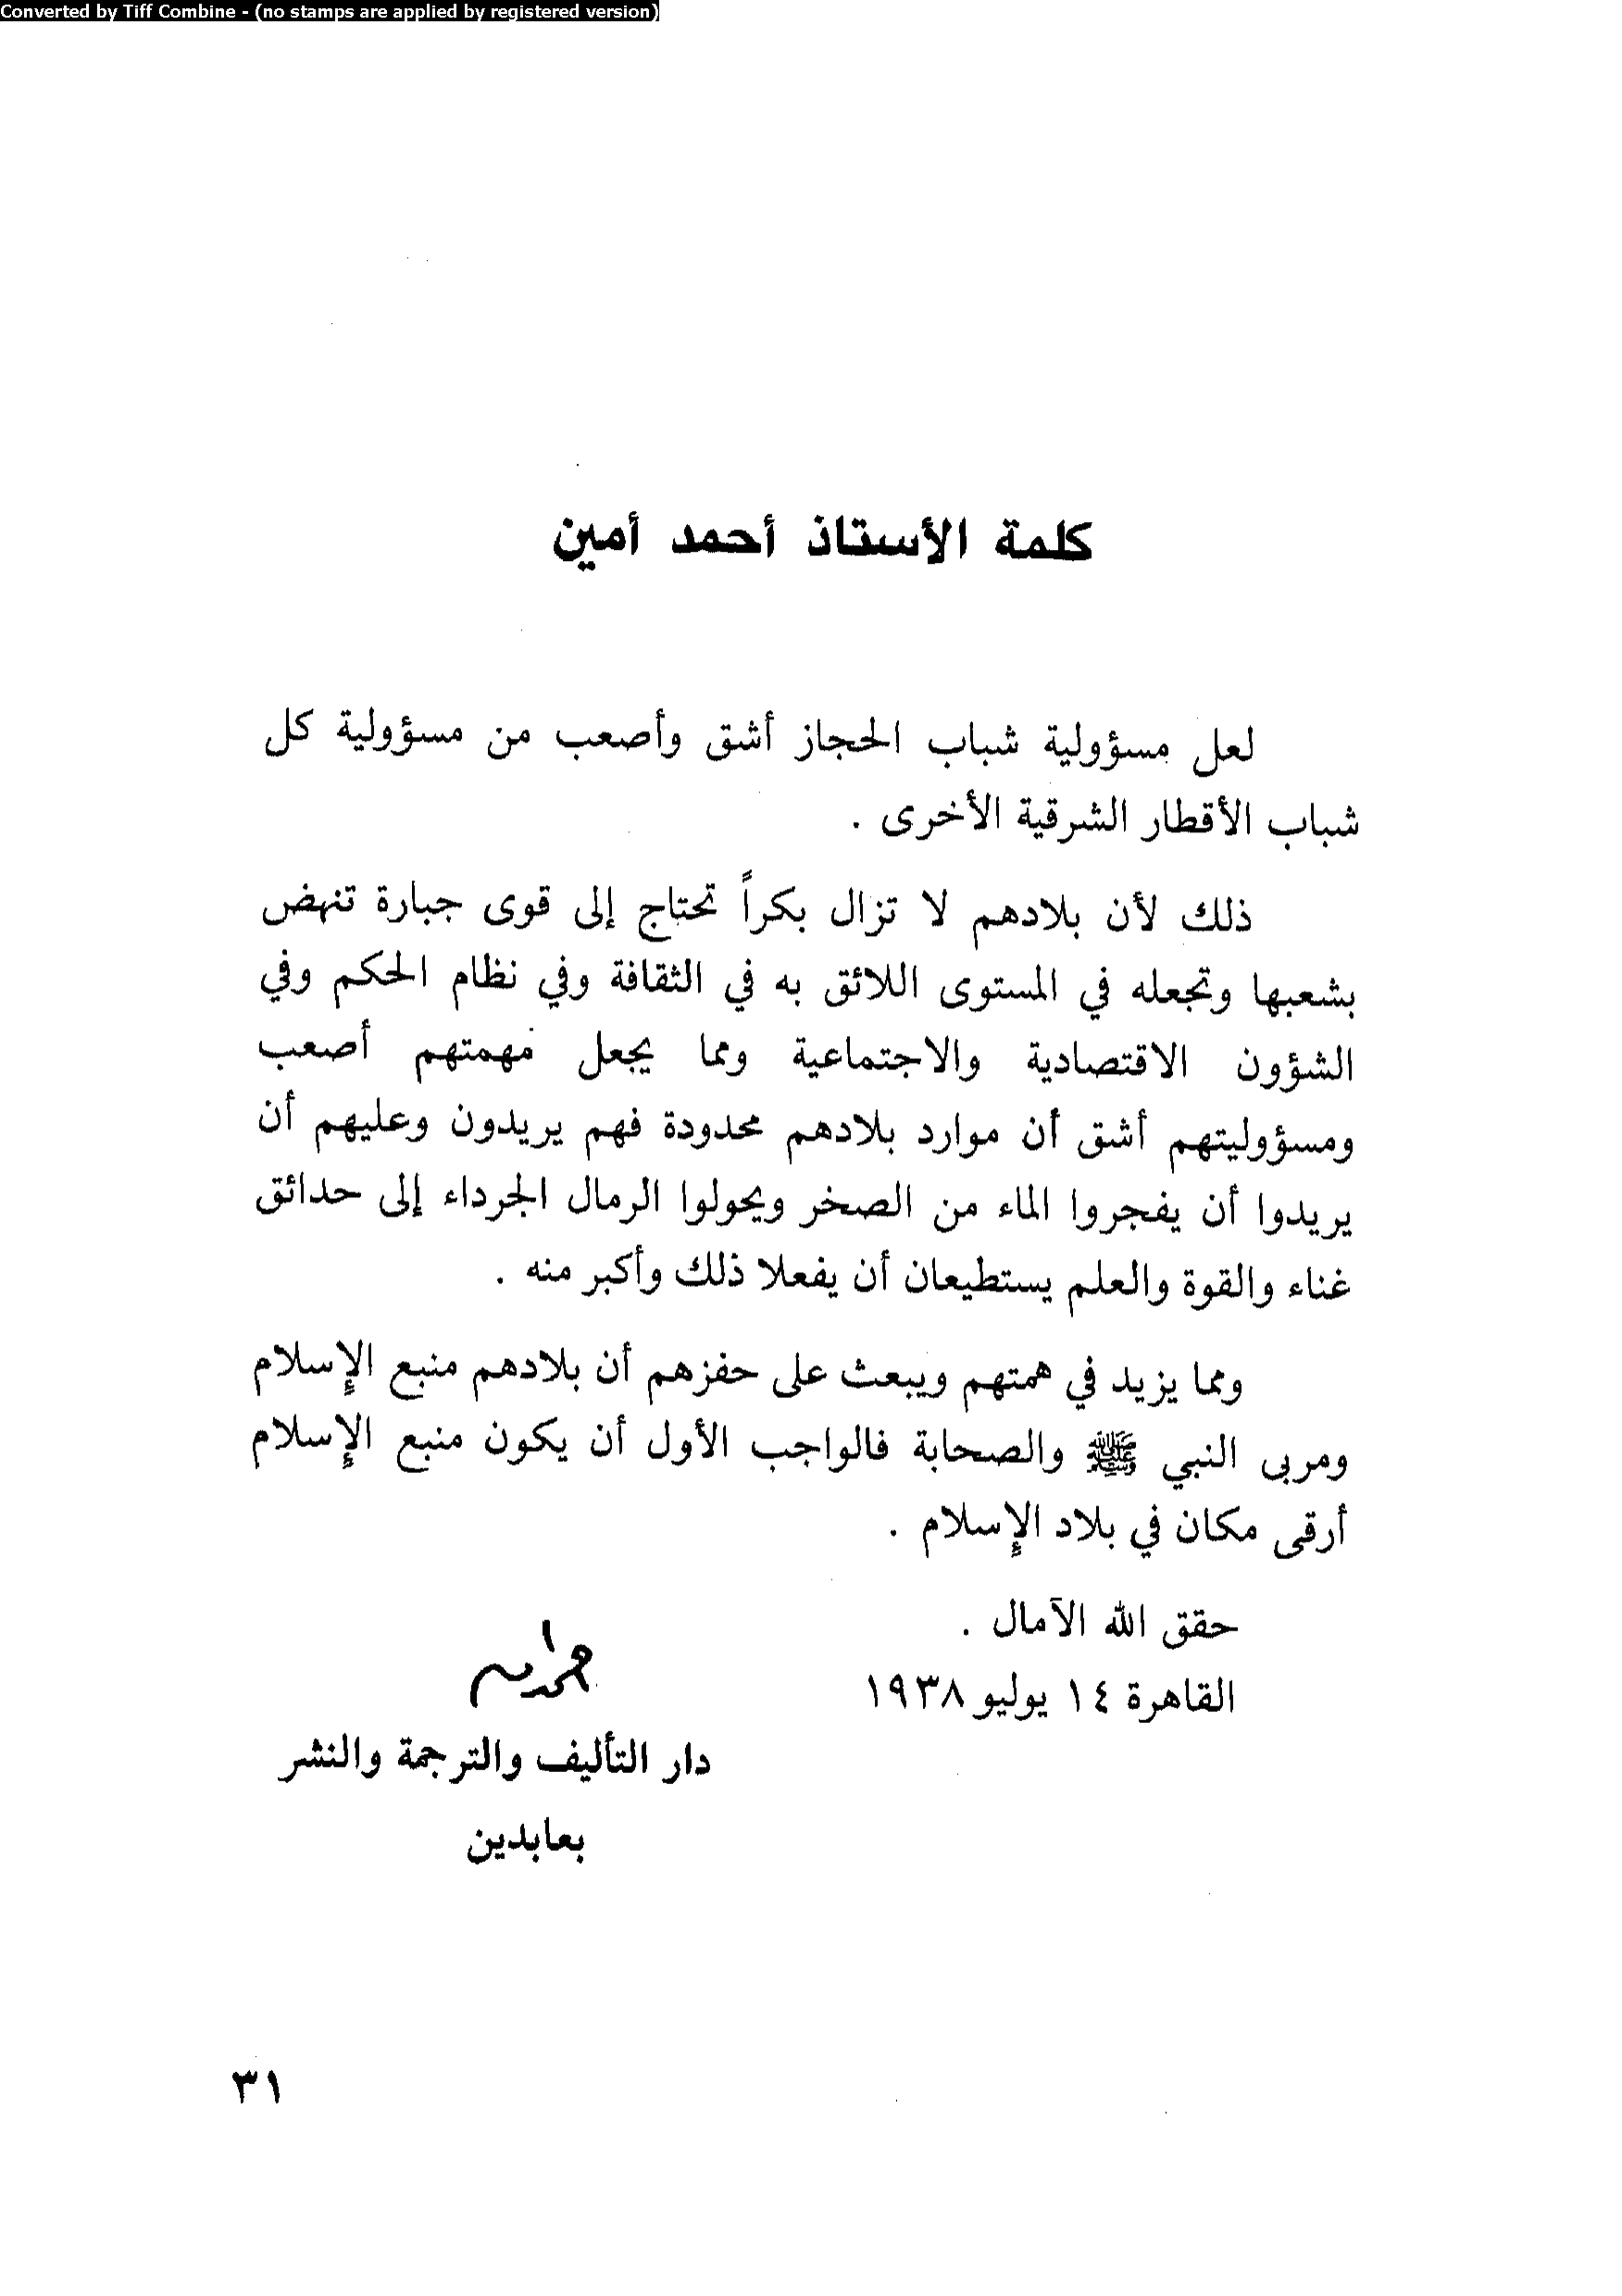 Converted by Tiff Combine - (no stamps are applied by registered version)
كلمة الأستاذ أحمد أمين
لعل مسؤولية شباب الحجاز أشق وأصعب من مسؤولية كل
شباب الأقطار الشرقية الأخرى .
ذلك لأن بلادهم لا تزال بكراً تحتاج إلى قوى جبارة تنهض
بشعبها وتجعله في المستوى اللائق به في الثقافة وفي نظام الحكم وفي
الشؤون الاقتصادية والاجتماعية ومما يجعل مهمتهم أصعب
ومسؤوليتهم أشق أن موارد بلادهم محدودة فهم يريدون وعليهم أن
يريدوا أن يفجروا الماء من الصخر ويحولوا الرمال الجرداء إلى حدائق
غناء والقوة والعلم يستطيعان أن يفعلا ذلك وأكبر منه .
ومما يزيد في همتهم ويبعث على حفزهم أن بلادهم منبع الإسلام
ومربى النبي ﷺ والصحابة فالواجب الأول أن يكون منبع الإسلام
أرقى مكان في بلاد الإسلام .
حقق الله الآمال .
القاهرة ١٤ يوليو ١٩٣٨
دار التأليف والترجمة والنشر
بعابدين
٣١